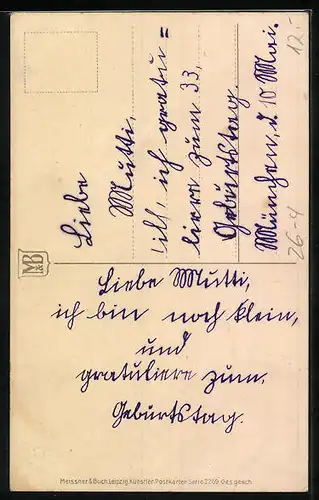 Liebe
Mutti,
ich, ich gratu=
liere zum 33,
Geburtstag
München, d. 10 Mai.
12.-
26-4
M&B
Liebe Mutti,
ich bin noch klein,
und
gratuliere zum,
Geburtstag.
Meissner & Buch, Leipzig, Künstler-Postkarten Serie 2269 Ges. gesch.